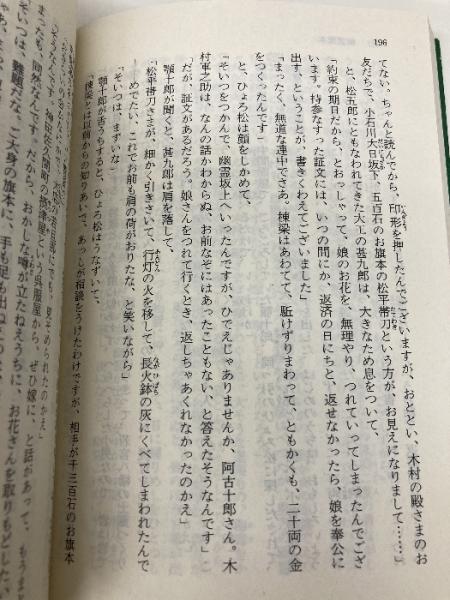 196
てない、ちゃんと読んでから、印形を押したんでございますが、おととい、木村の殿さまのお
友だちで、小石川大日坂下、五百石のお旗本の松平帯刀という方が、お見えになりまして……」
と、松五郎にともなわれてきた大工の甚九郎は、大きなため息をついて、
「約束の期日だから、とおっしゃって、娘のお花を、無理やり、つれていってしまったんでござ
います。持参なすった証文には、いつの間にか、返済の日にちと、返せなかったら、娘を奉公に
出す、ということが、書きくわえてございました」
「まったく、無道な連中でさあ。棟梁はあわてて、駈けずりまわって、ともかくも、二十両の金
をつくったんです」
と、ひょろ松は顔をしかめて、
「そいつをつかんで、幽霊坂上へいったんですが、ひでえじゃありませんか、阿古十郎さん。木
村車之助は、なんの話かわからぬ、お前なぞにはあったこともない、と答えたそうなんです」
「だが、証文があるだろう。娘さんをつれて行くとき、返しちゃあくれなかったのかえ」
顎十郎が聞くと、甚九郎は肩を落して、
「松平帯刀さまが、細かく引きさいて、行灯の火を移して、長火鉢の灰にくべてしまわれたんで
す。めでたい、これでお前も肩の荷がおりたな、と笑いながら」
「そいつは、まずいな」
顎十郎が舌うちすると、ひょろ松はうなずいて、
「棟梁とは以前からの知りあいで、あっしが相談をうけたわけですが、相手が千三百石のお旗本